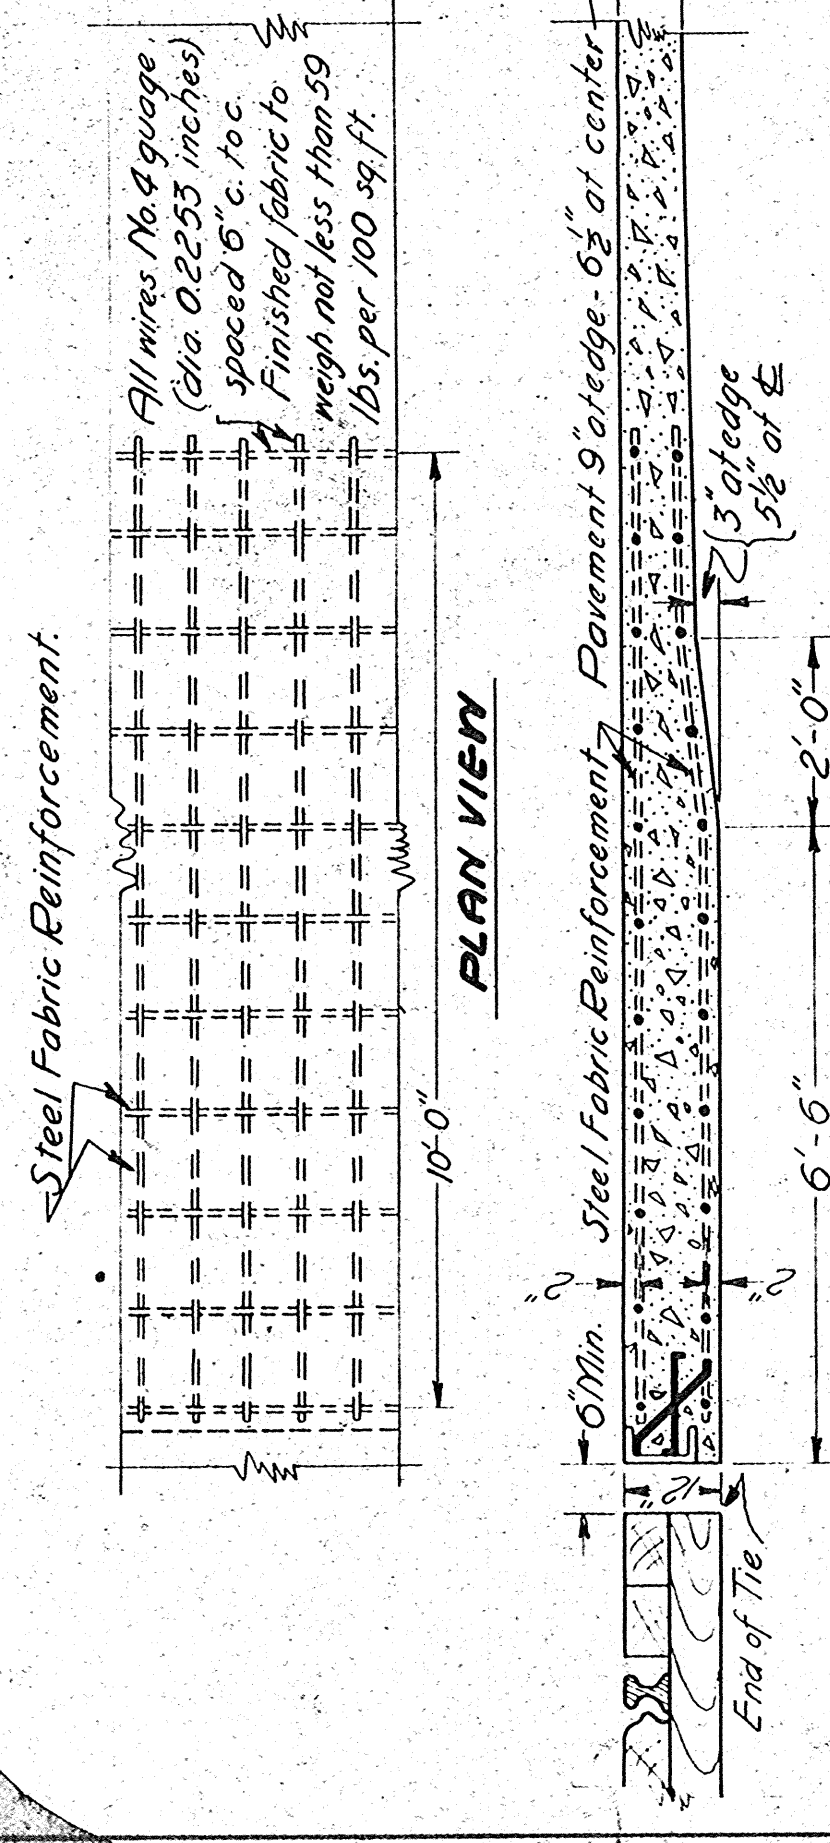 Steel Fabric Reinforcement.
All wires No.4 guage
(dia. 0.2253 inches)
spaced 6" c. to c.
Finished fabric to
weigh not less than 59
lbs. per 100 sq. ft.
10'-0"
PLAN VIEW
Steel Fabric Reinforcement
Pavement 9" at edge - 6½" at center
6" Min.
2"
2"
12"
3" at edge
5½" at ℄
End of Tie
6'-6"
2'-0"